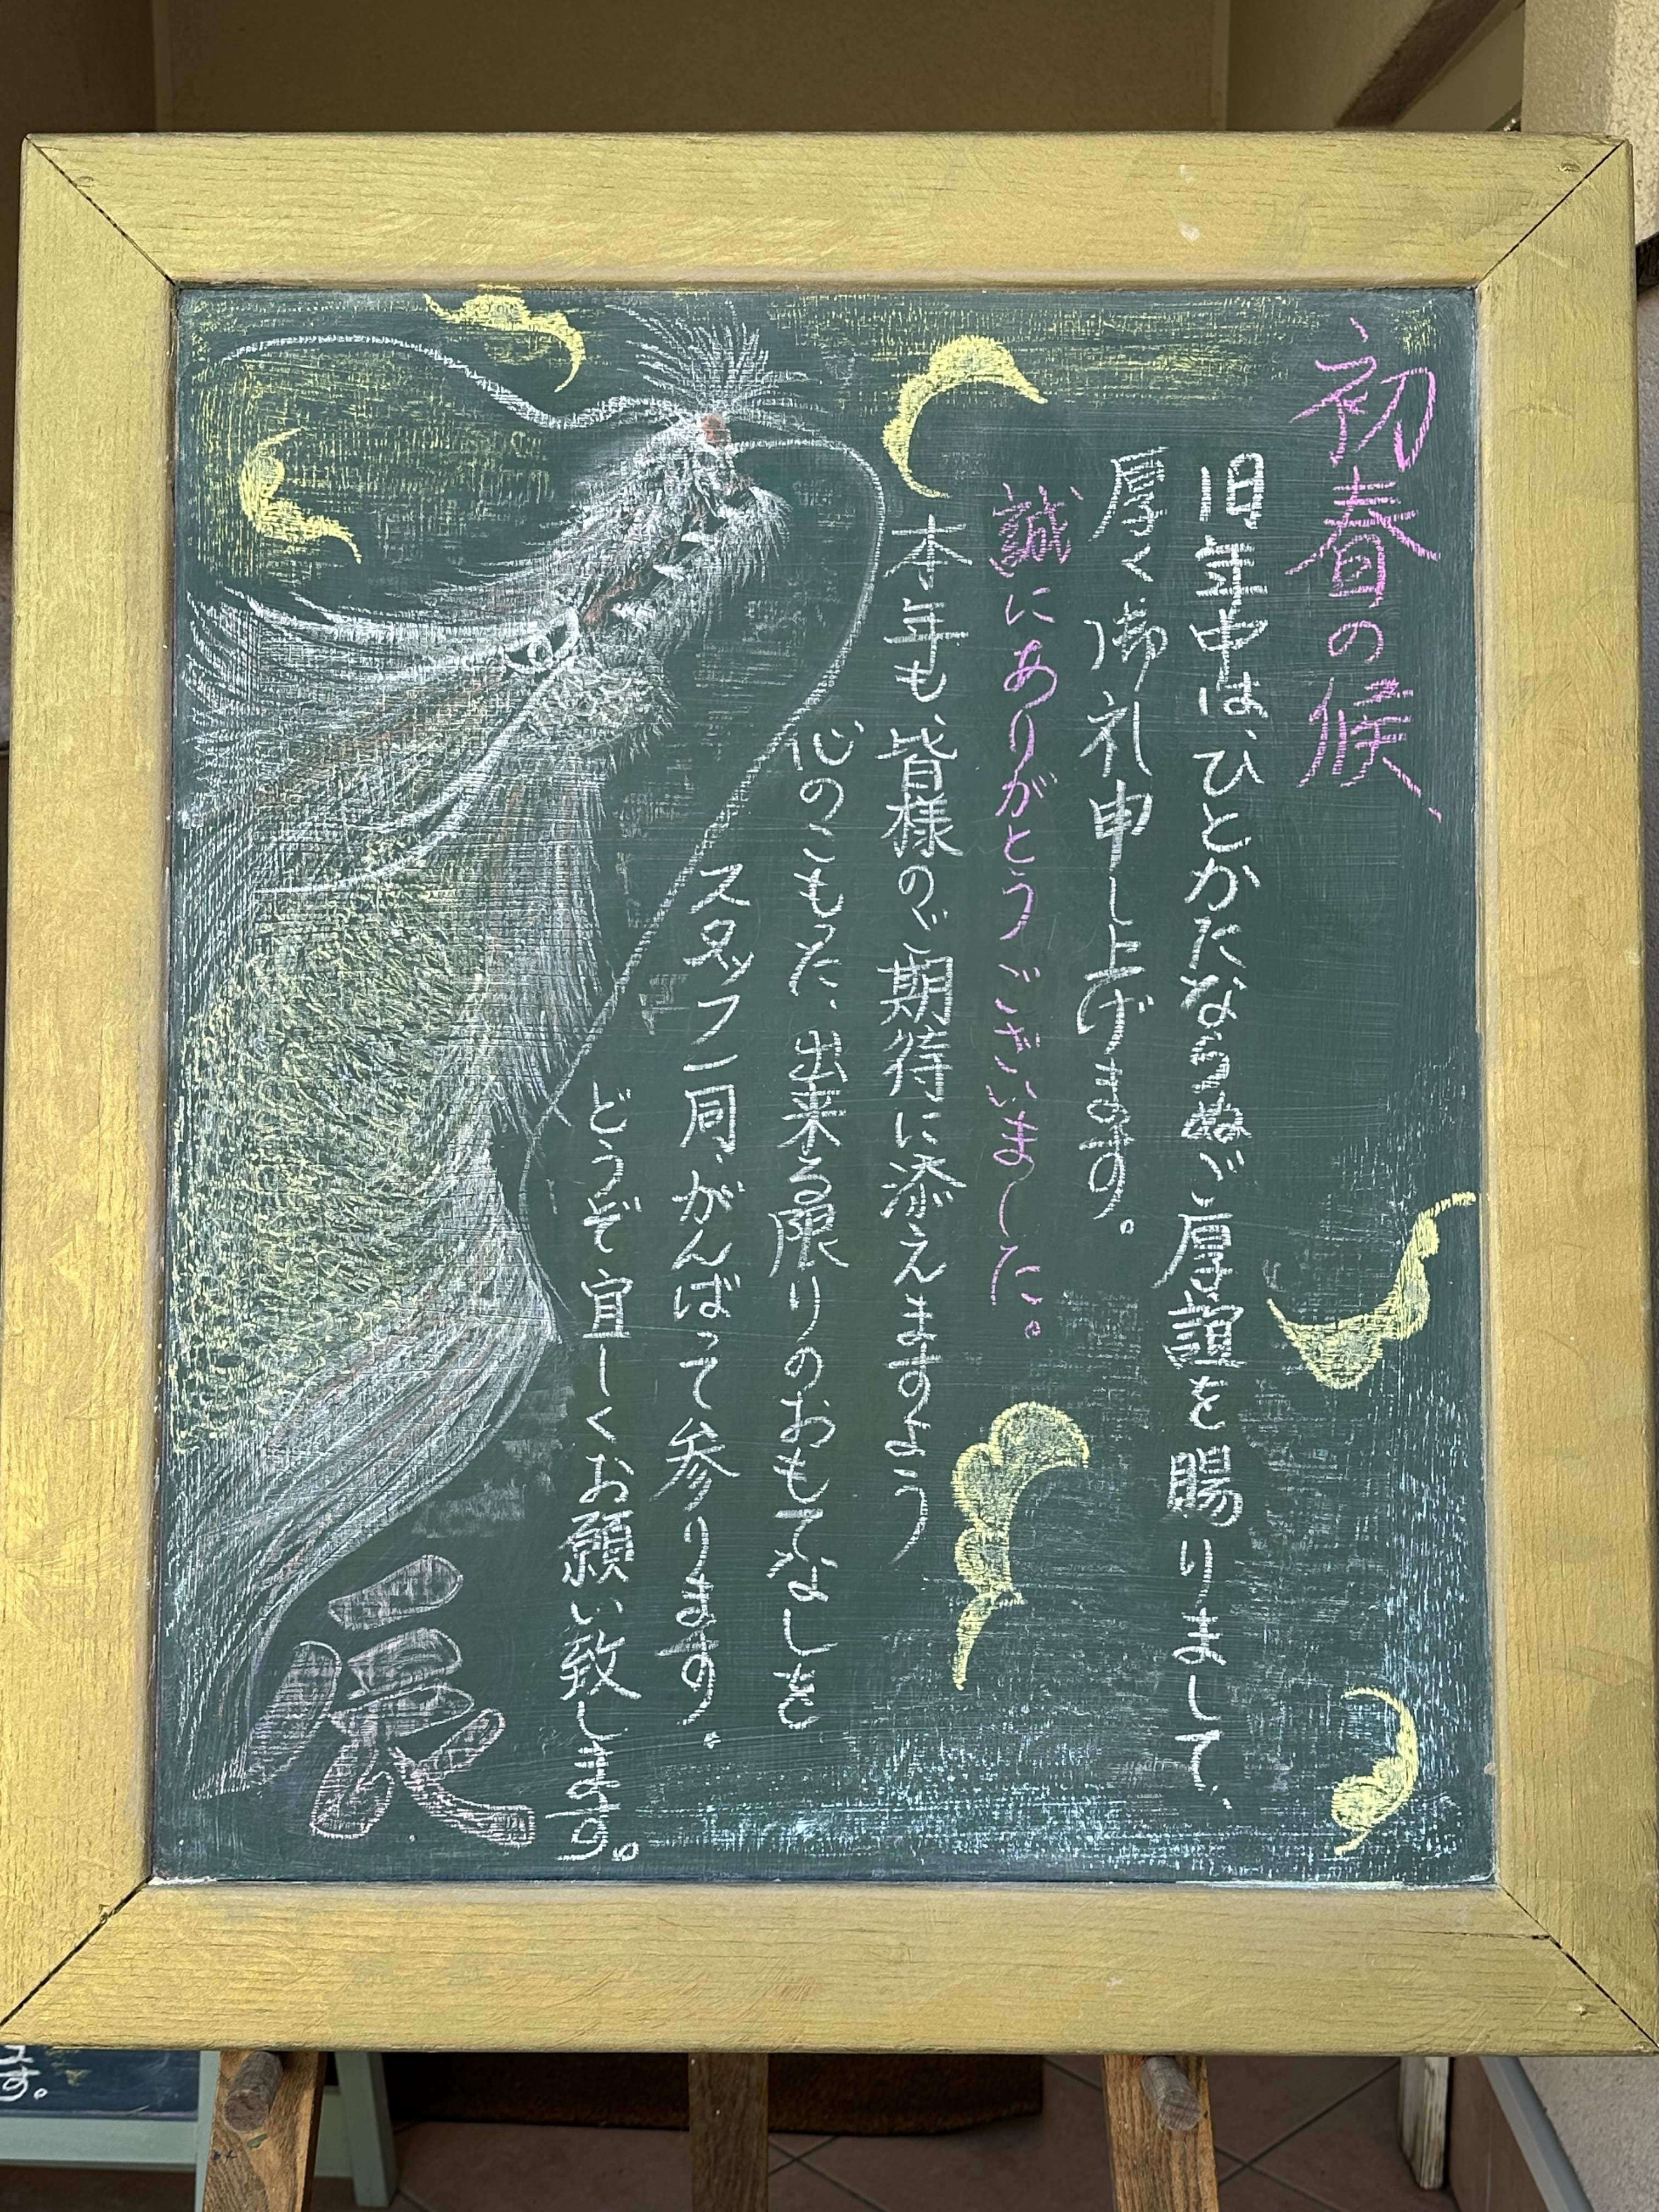 初春の候、
旧年中は、ひとかたならぬご厚誼を賜りまして、
厚く御礼申し上げます。
誠にありがとうございました。
本年も、皆様のご期待に添えますよう
心のこもった、出来る限りのおもてなしを
スタッフ一同がんばって参ります。
どうぞ宜しくお願い致します。
辰
す。